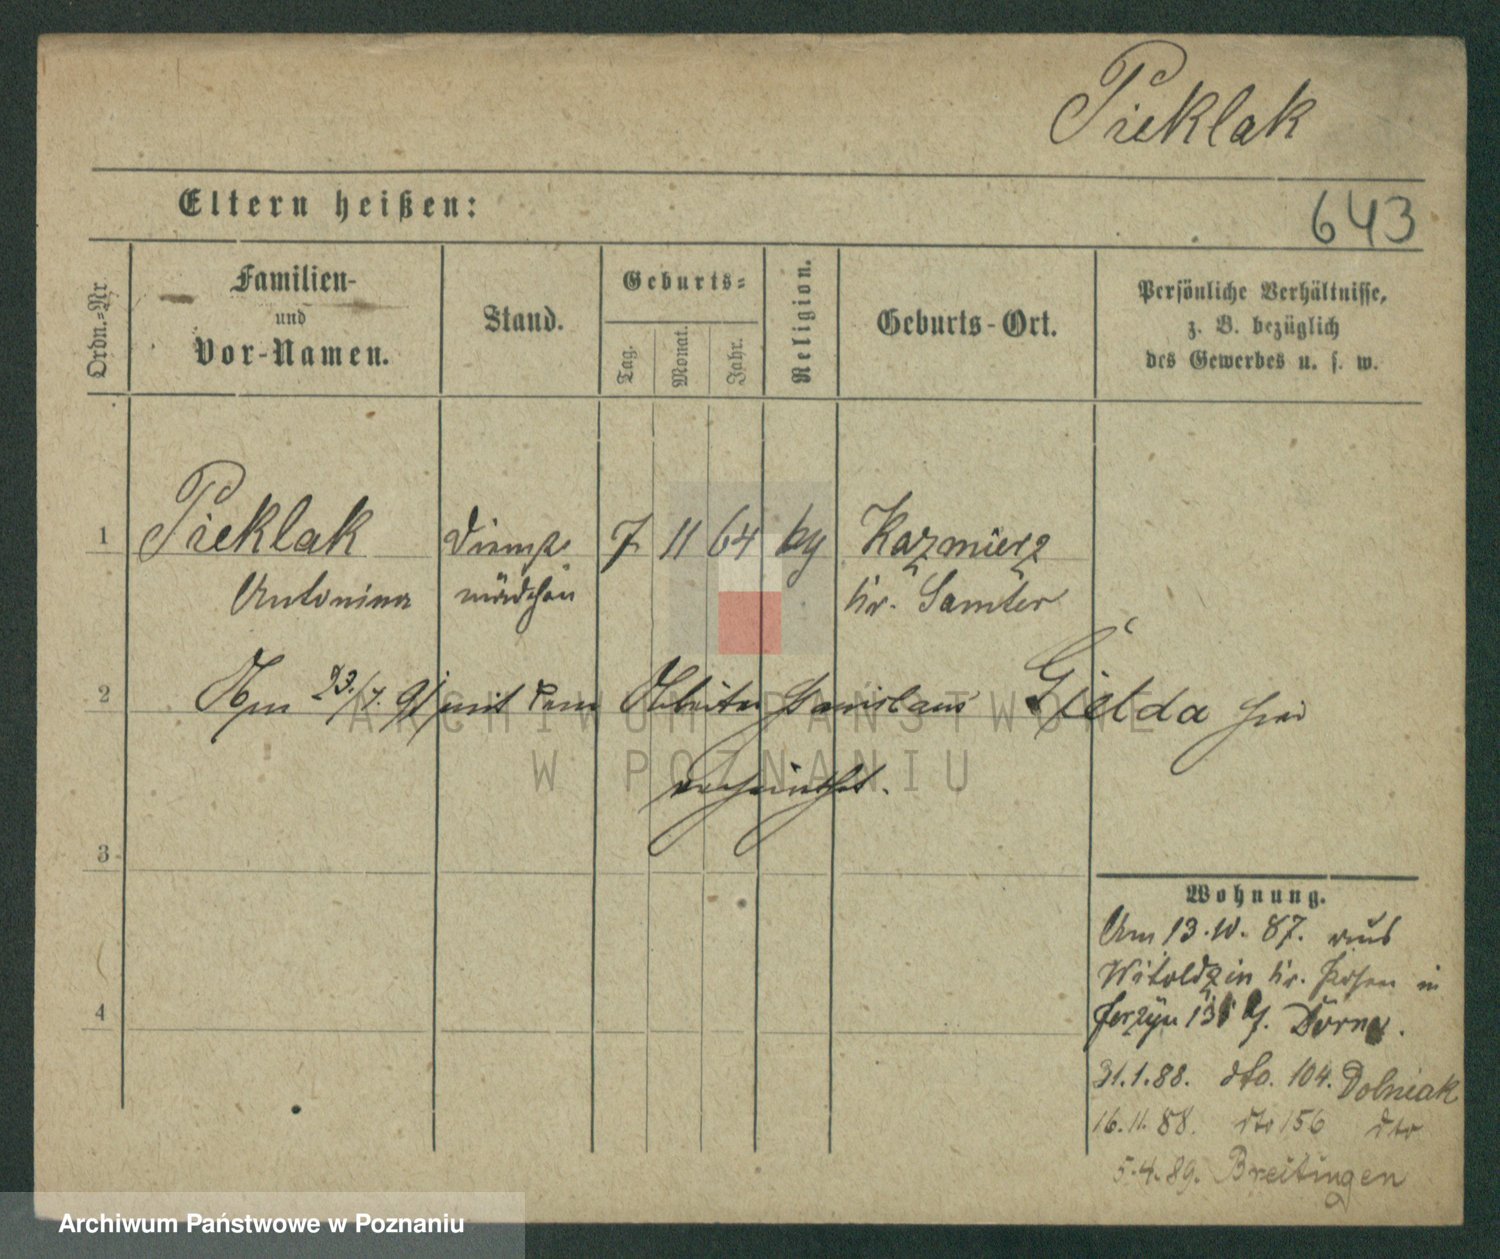 Pieklak
Eltern heißen:
643
Ordn.-Nr.
Familien-
und
Vor-Namen.
Stand.
Geburts-
Tag.
Monat.
Jahr.
Religion.
Geburts-Ort.
Persönliche Verhältnisse,
z. B. bezüglich
des Gewerbes u. s. w.
1 Pieklak Dienst- 7 11 64 kg Kazmierz
Antonina mädchen Kr. Samter
2 Am 23/7. 91 mit dem Arbeiter Stanislaus Gielda hier
verheirathet.
3
4
Wohnung.
Am 13. 10. 87. aus
Witoldzin Kr. Posen in
Jerzyce
31.1.88. dto. 104. Dolniak
16.11.88. dto 156 dto
5.4.89. Breitingen
ARCHIWUM PAŃSTWOWE
W POZNANIU
Archiwum Państwowe w Poznaniu